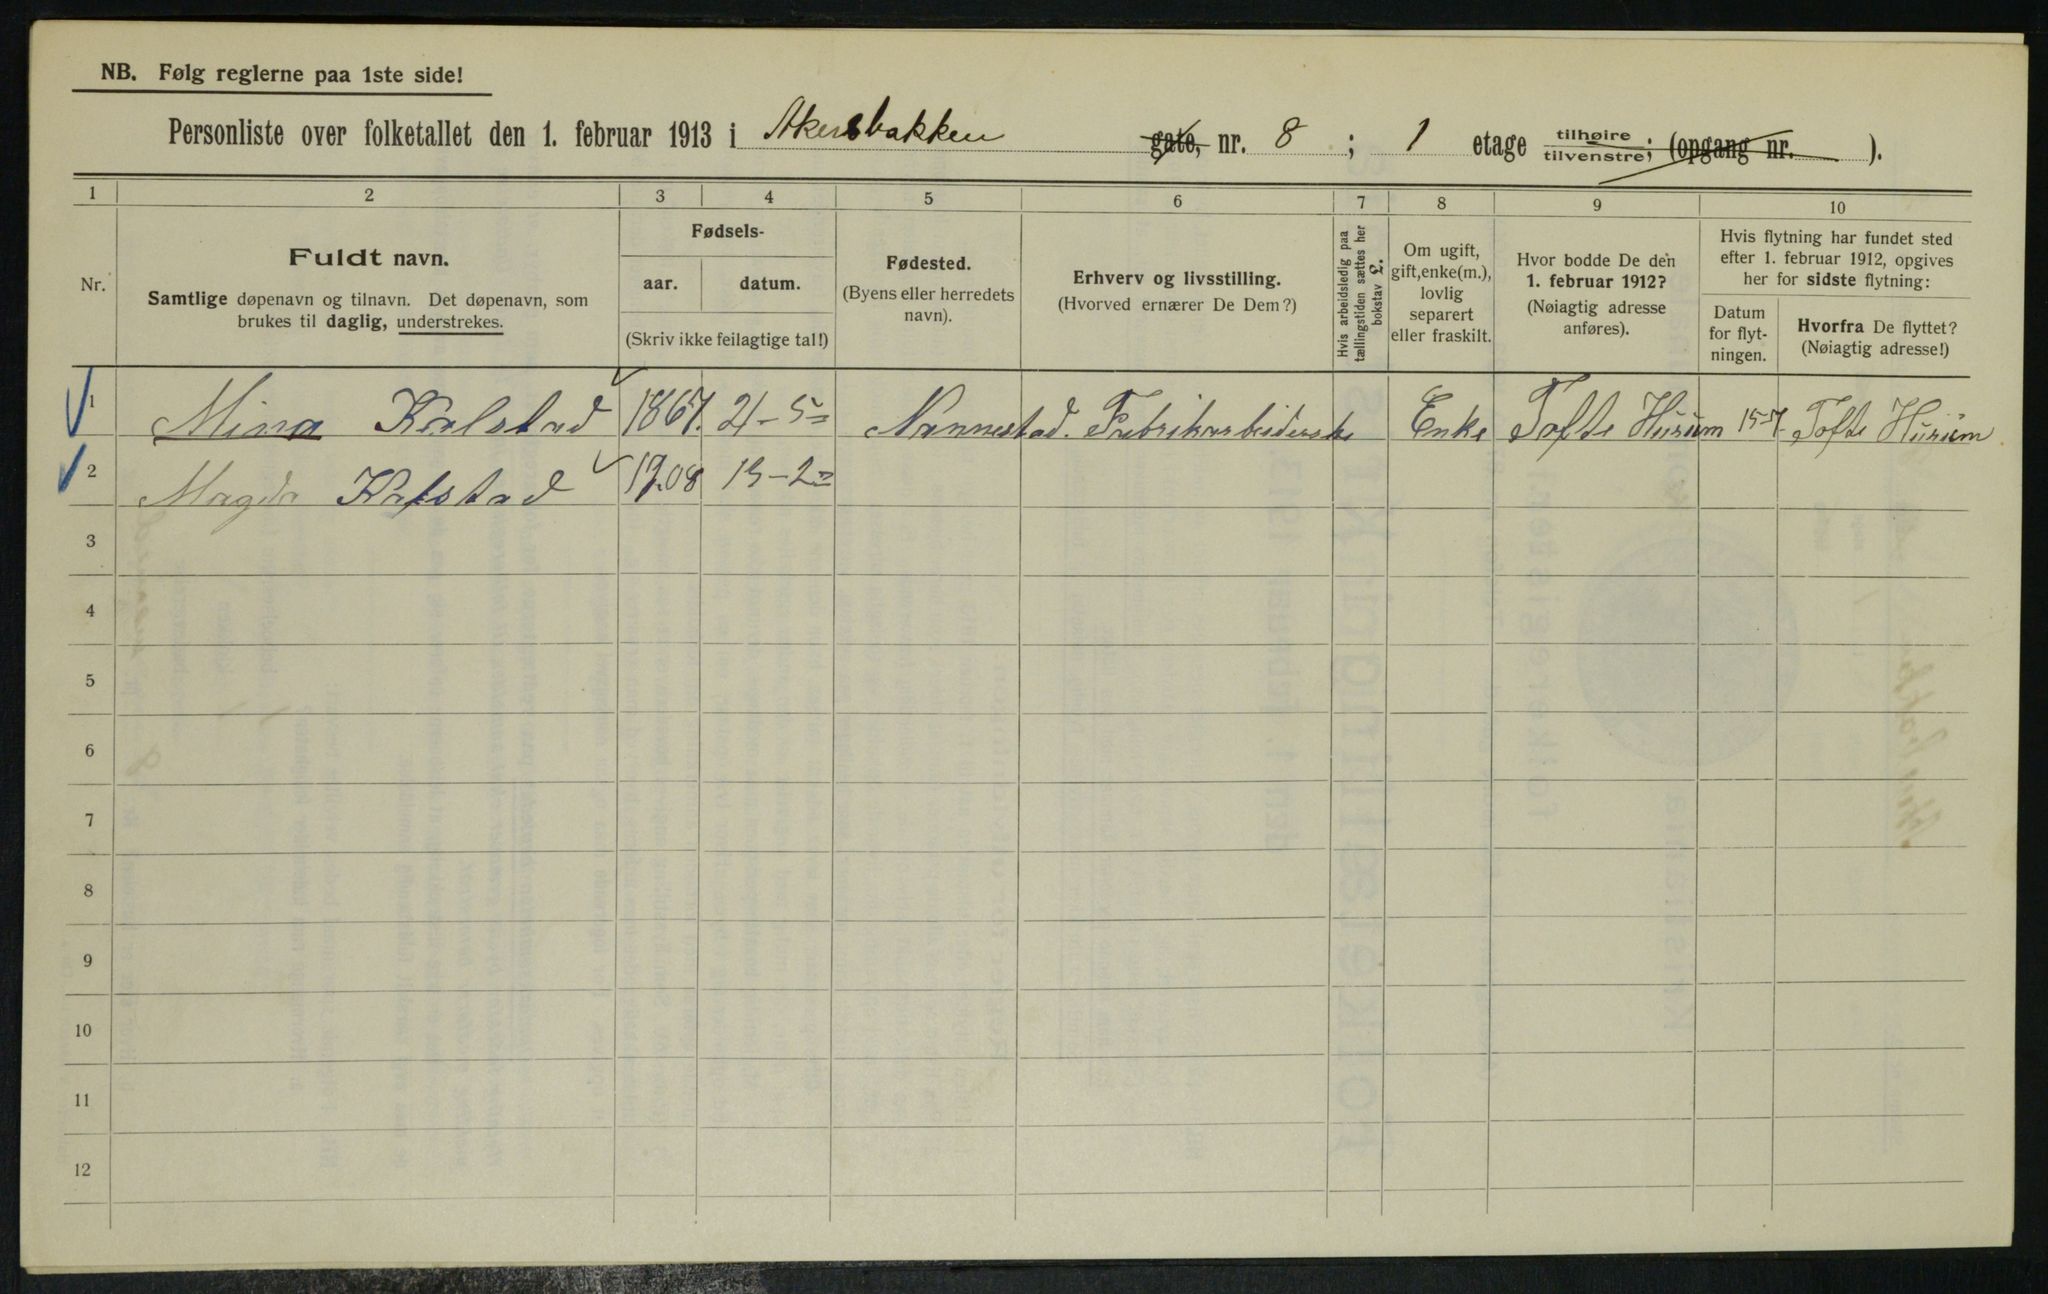 NB. Følg reglerne paa 1ste side!
Personliste over folketallet den 1. februar 1913 i Akersbakken gate, nr. 8 ; 1 etage tilhøire tilvenstre; (opgang nr. ).
1 2 3 4 5 6 7 8 9 10
Nr.
Fuldt navn.
Samtlige døpenavn og tilnavn. Det døpenavn, som
brukes til daglig, understrekes.
Fødsels-
aar. datum.
(Skriv ikke feilagtige tal!)
Fødested.
(Byens eller herredets
navn).
Erhverv og livsstilling.
(Hvorved ernærer De Dem?)
Hvis arbeidsledig paa
tællingstiden sættes her
bokstav L.
Om ugift,
gift, enke(m.),
lovlig
separert
eller fraskilt.
Hvor bodde De den
1. februar 1912?
(Nøiagtig adresse
anføres).
Hvis flytning har fundet sted
efter 1. februar 1912, opgives
her for sidste flytning:
Datum
for flyt-
ningen.
Hvorfra De flyttet?
(Nøiagtig adresse!)
1 Mina Kalstad 1867. 21-5 Nannestad. Fabrikarbeiderske Enke Tofte Hurum 15-7 Tofte Hurum
2 Magda Kalstad 1908 13-2
3
4
5
6
7
8
9
10
11
12